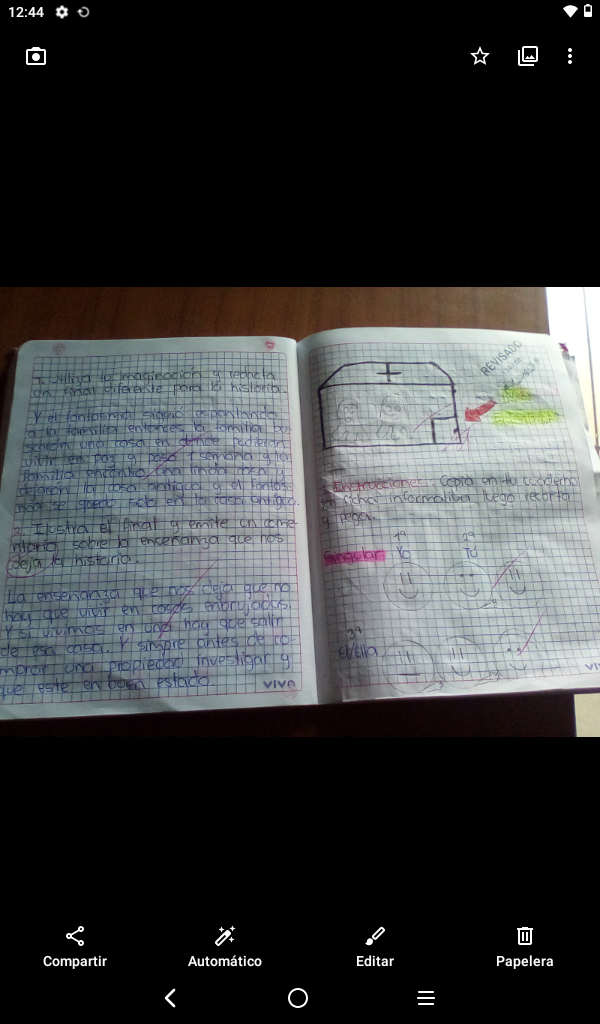 12:44
1. Utiliza tu imaginación y redacta
un final diferente para la historia.
Y el fantasma siguió espantando
a la familia entonces la familia bu-
scarón una casa en donde pudieran
vivir en paz y paso 1 semana y la
familia encontro una linda casa y
dejaron la casa antigua y el fantas-
ma se quedo solo en la casa antigua.
2. Ilustra el final y emite un come-
ntario sobre la enseñanza que nos
deja la historia.
La enseñanza que nos deja que no
hay que vivir en casas embrujadas.
Y si vivimos en una hay que salir
de esa casa. Y simpre antes de co-
mprar una propiedad investigar y
que este en buen estado.
viva
REVISADO
Instrucciones: Copia en tu cuaderno
la ficha informativa luego recorta
y pega.
Singular
1ª
Yo
2ª
Tú
3ª
El/Ella
Compartir
Automático
Editar
Papelera